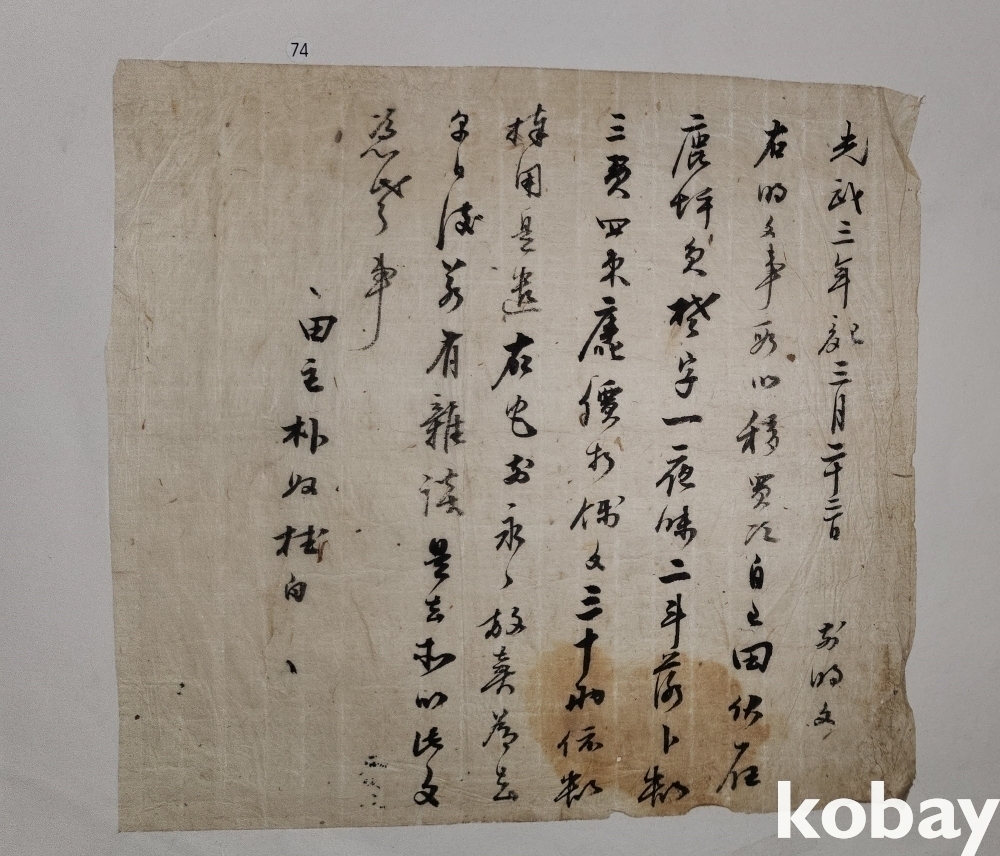 74
光武三年三月二十日 前明文
右明文事段以移買次自己田伏在
鹿坪員字一夜味二斗落卜數
三負四束庫價折錢文三十兩依數
捧用是遣右宅前永々放賣爲去
乎日後若有雜談是去等以此文
憑考事
田主朴奴白
kobay